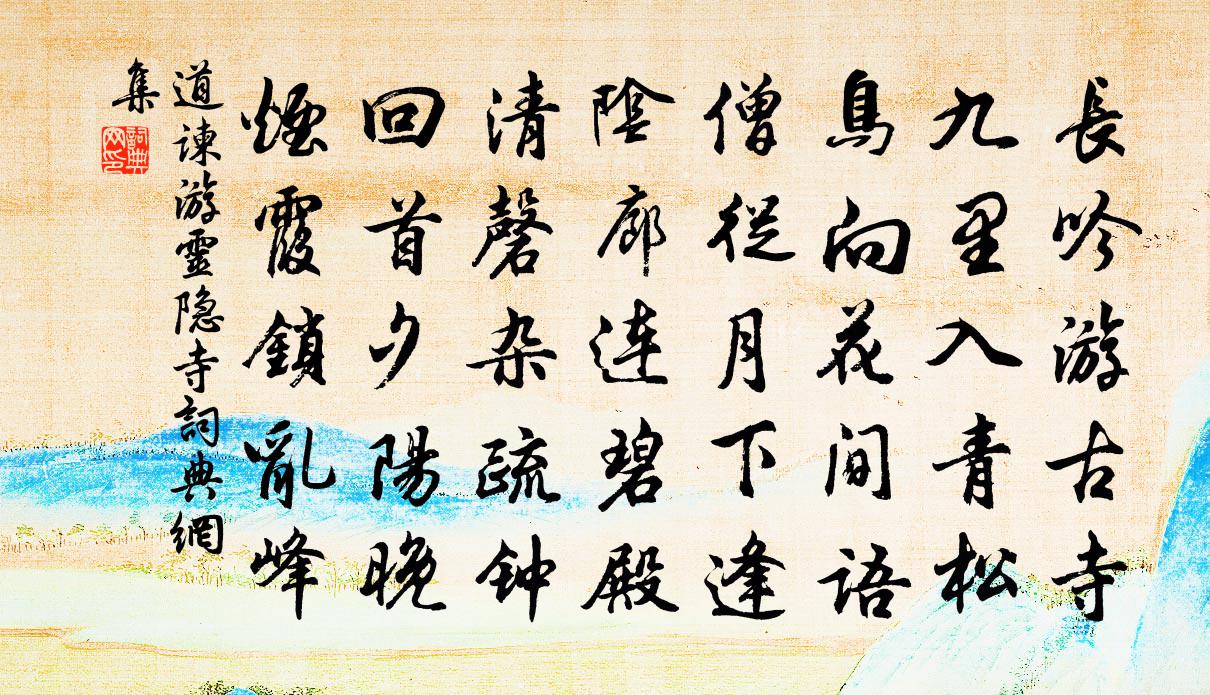 長吟游古寺
九里入青松
鳥向花间語
僧從月下逢
陰廊連碧殿
清磬杂疏钟
回首夕陽晚
煙霞鎖亂峰
道諫游靈隐寺詞典網
集
詞典网印